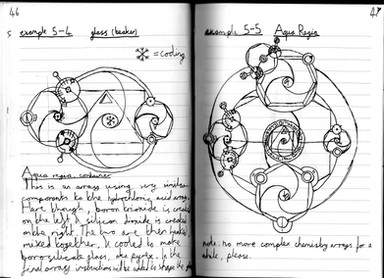 46
example 5-4 glass (beaker)
= coding
Aqua regia, container
This is an array using very similar
components to the hydrochloric acid array.
here though, boron trioxide is created
on the left & silicon dioxide is created
on the right. The two are then heated
mixed together, & cooled to make
borosilicate glass, aka pyrex. In the
final array instructions will be added to shape the
47
example 5-5 Aqua Regia
note: no more complex chemistry arrays for a
while, please.